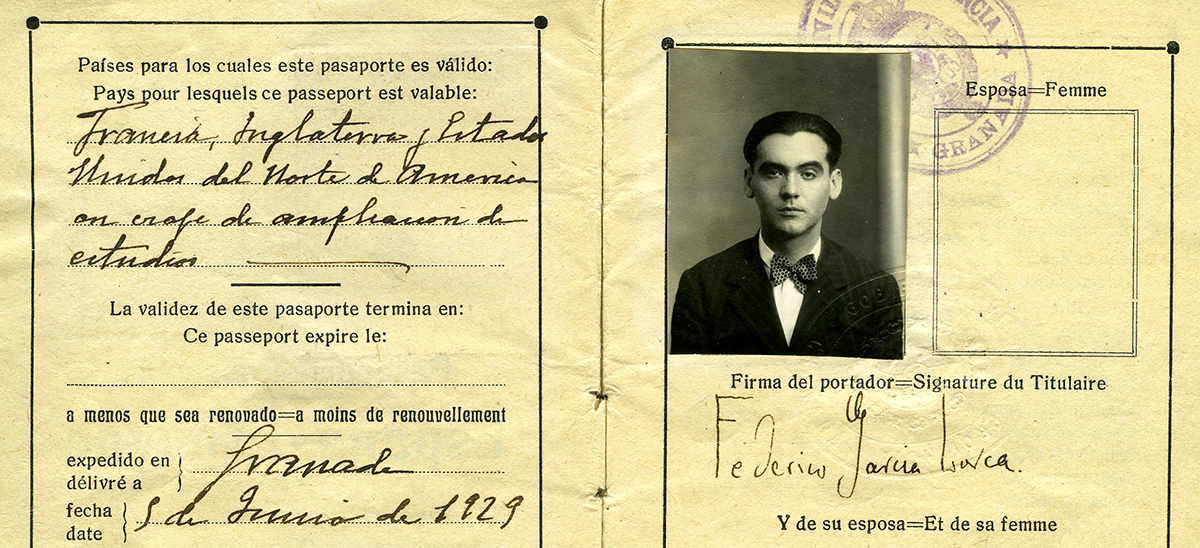 Países para los cuales este pasaporte es válido:
Pays pour lesquels ce passeport est valable:
Francia, Inglaterra y Estados
Unidos del Norte de America
en viaje de ampliacion de
estudios
La validez de este pasaporte termina en:
Ce passeport expire le:
a menos que sea renovado=a moins de renouvellement
expedido en
délivré a
Granada
fecha
date
5 de Junio de 1929
GRANADA
Esposa=Femme
Firma del portador=Signature du Titulaire
Federico García Lorca.
Y de su esposa=Et de sa femme